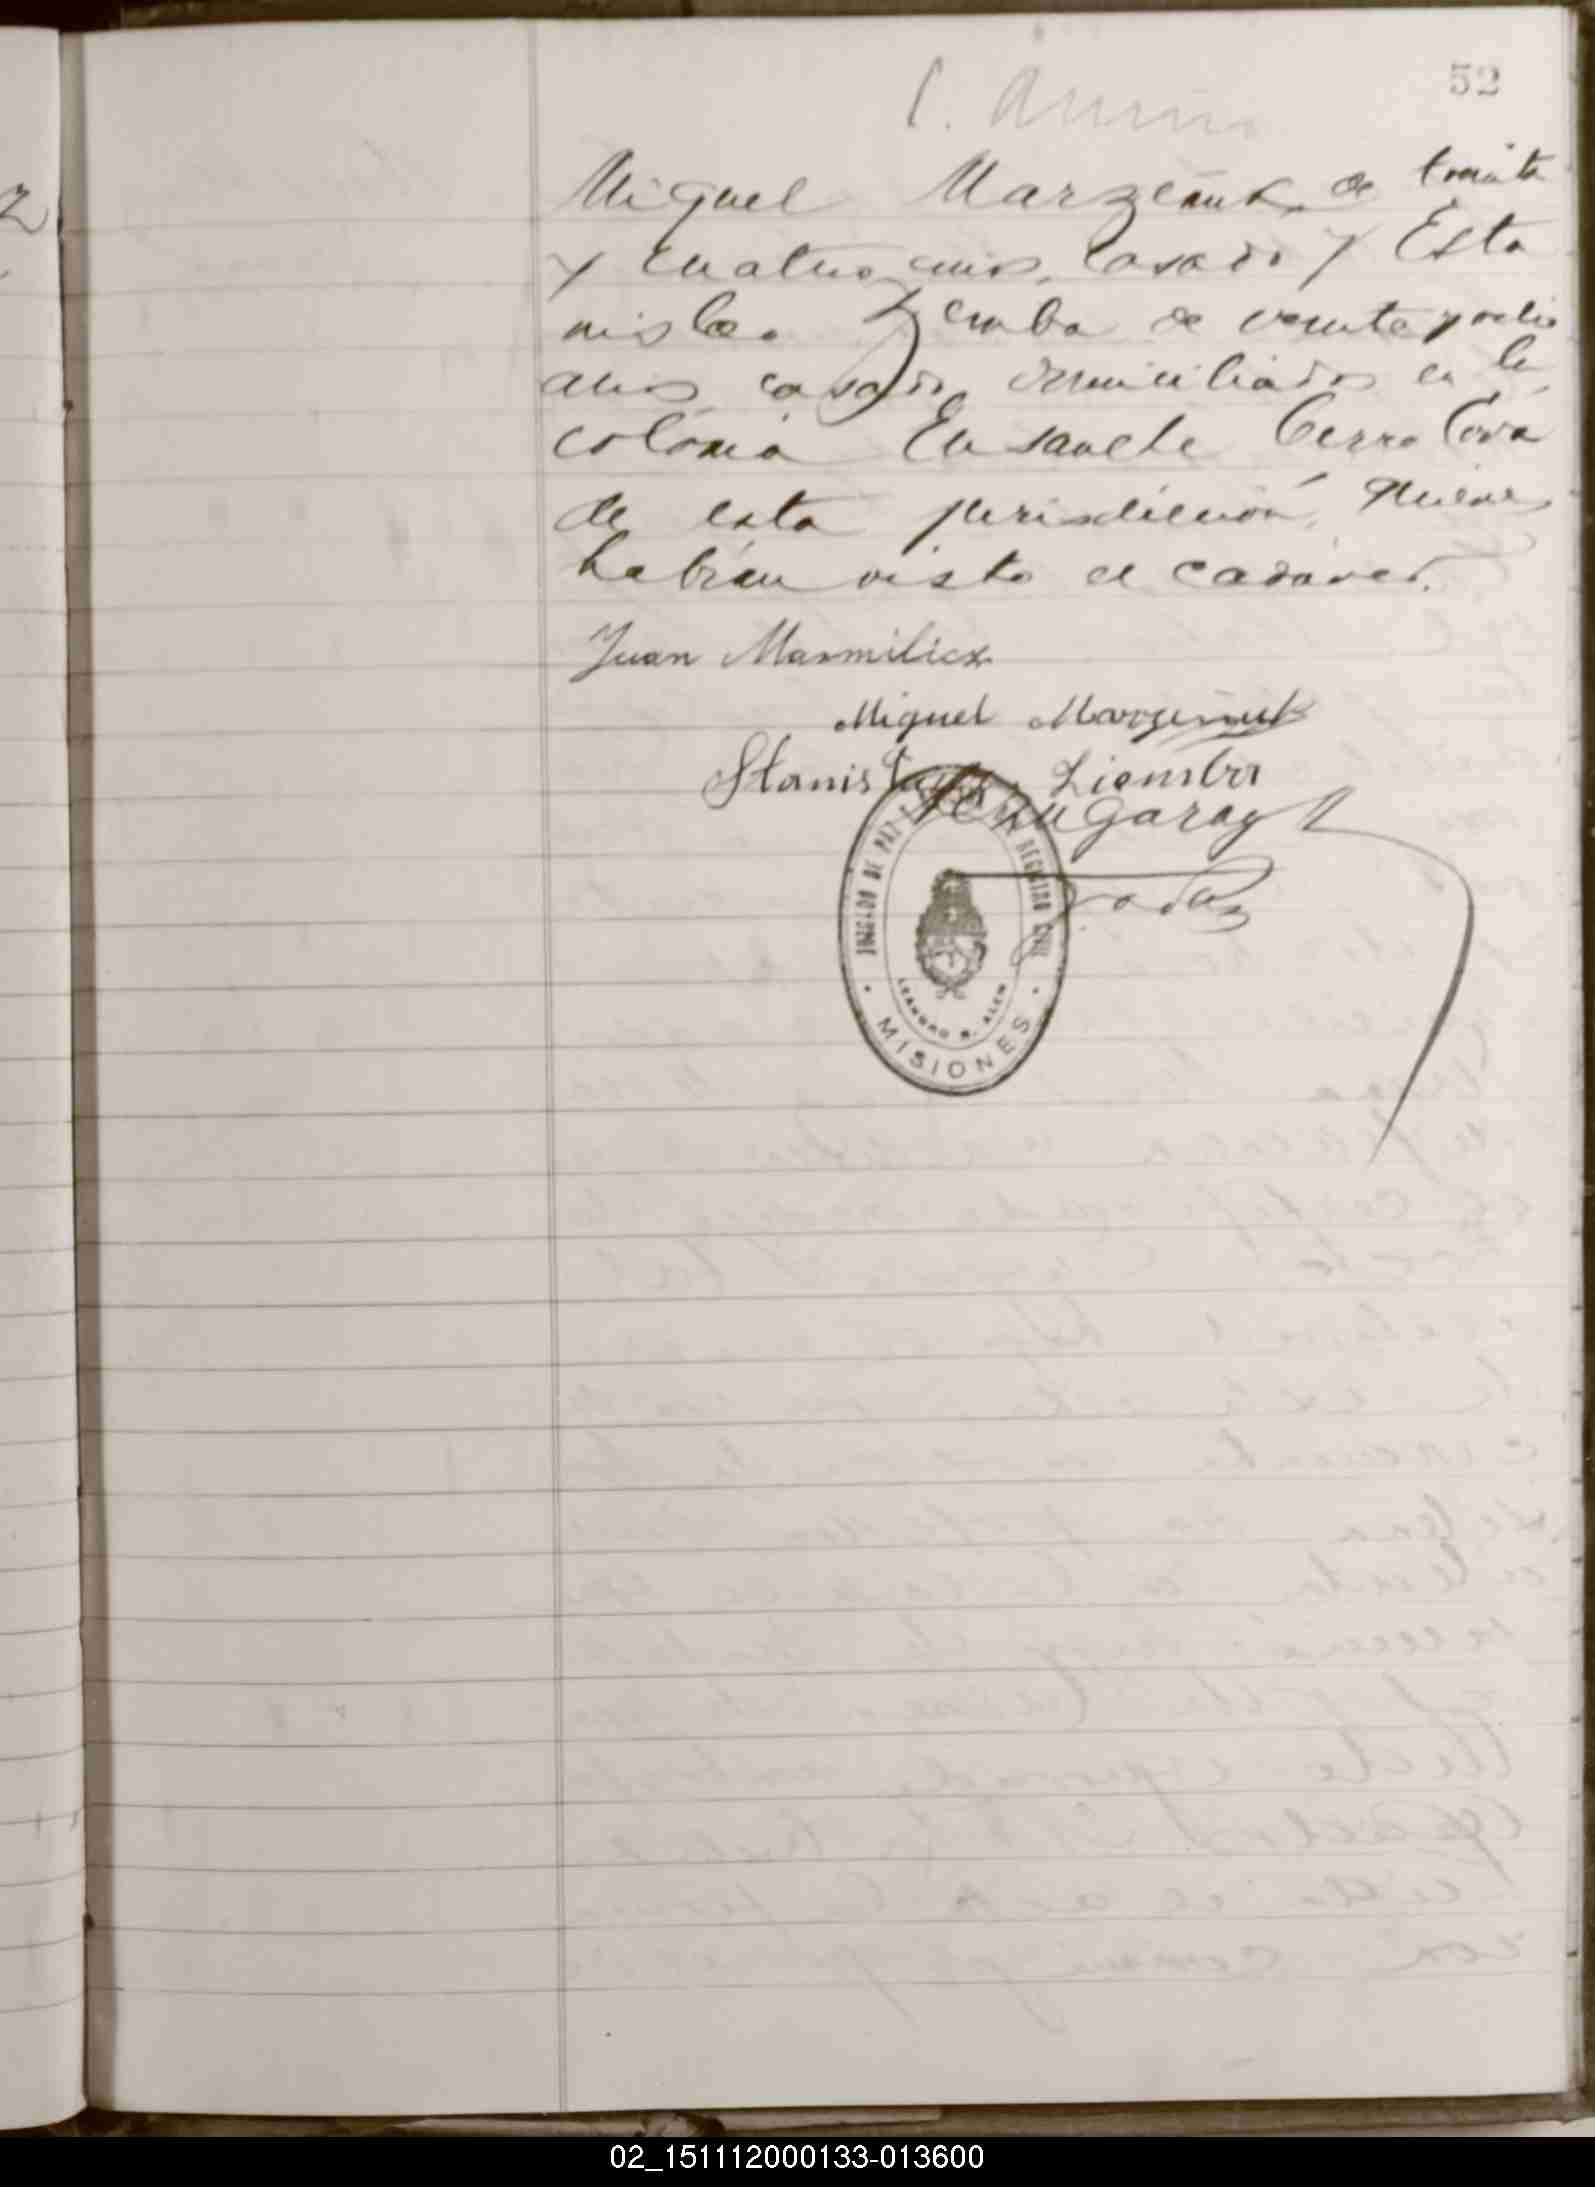 52
Miguel de treinta
y cuatro años, casado y Esta
nislao Ziemba de veinte y ocho
años casado, domiciliados en la
colonia Ensanche Cerro Corá
de esta jurisdicción, quienes
habían visto el cadáver.
Juan Marmilicz
Miguel
Stanisław Ziemba
JUZGADO DE PAZ REGISTRO CIVIL
LEANDRO N. ALEM
MISIONES
02_151112000133-013600